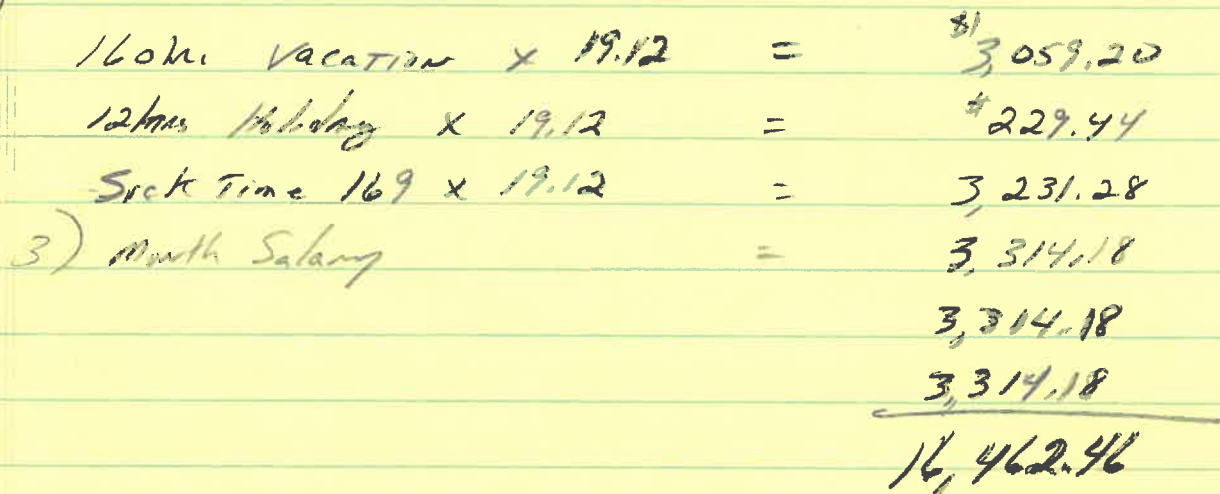 160hr Vacation x 19.12 = $ 3,059.20
12hrs Holiday x 19.12 = $229.44
Sick Time 169 x 19.12 = 3,231.28
3) Month Salary = 3,314.18
3,314.18
3,314.18
16,462.46